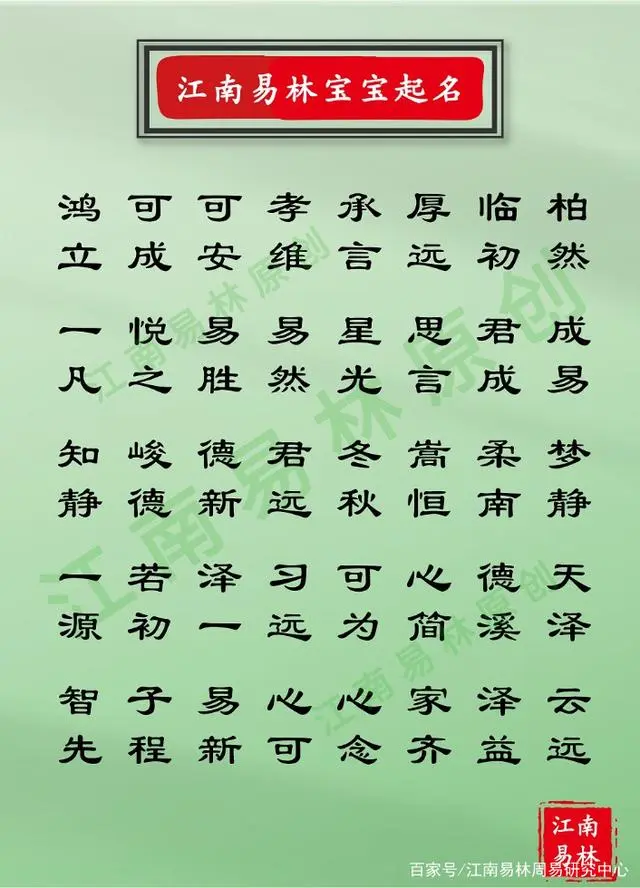 江南易林宝宝起名
鸿可可孝承厚临柏
立成安维言远初然
一悦易易星思君成
凡之胜然光言成易
知峻德君冬嵩柔梦
静德新远秋恒南静
一若泽习可心德天
源初一远为简溪泽
智子易心心家泽云
先程新可念齐益远
江南易林原创
江南易林原创
江南易林原创
江南
易林
百家号/江南易林周易研究中心